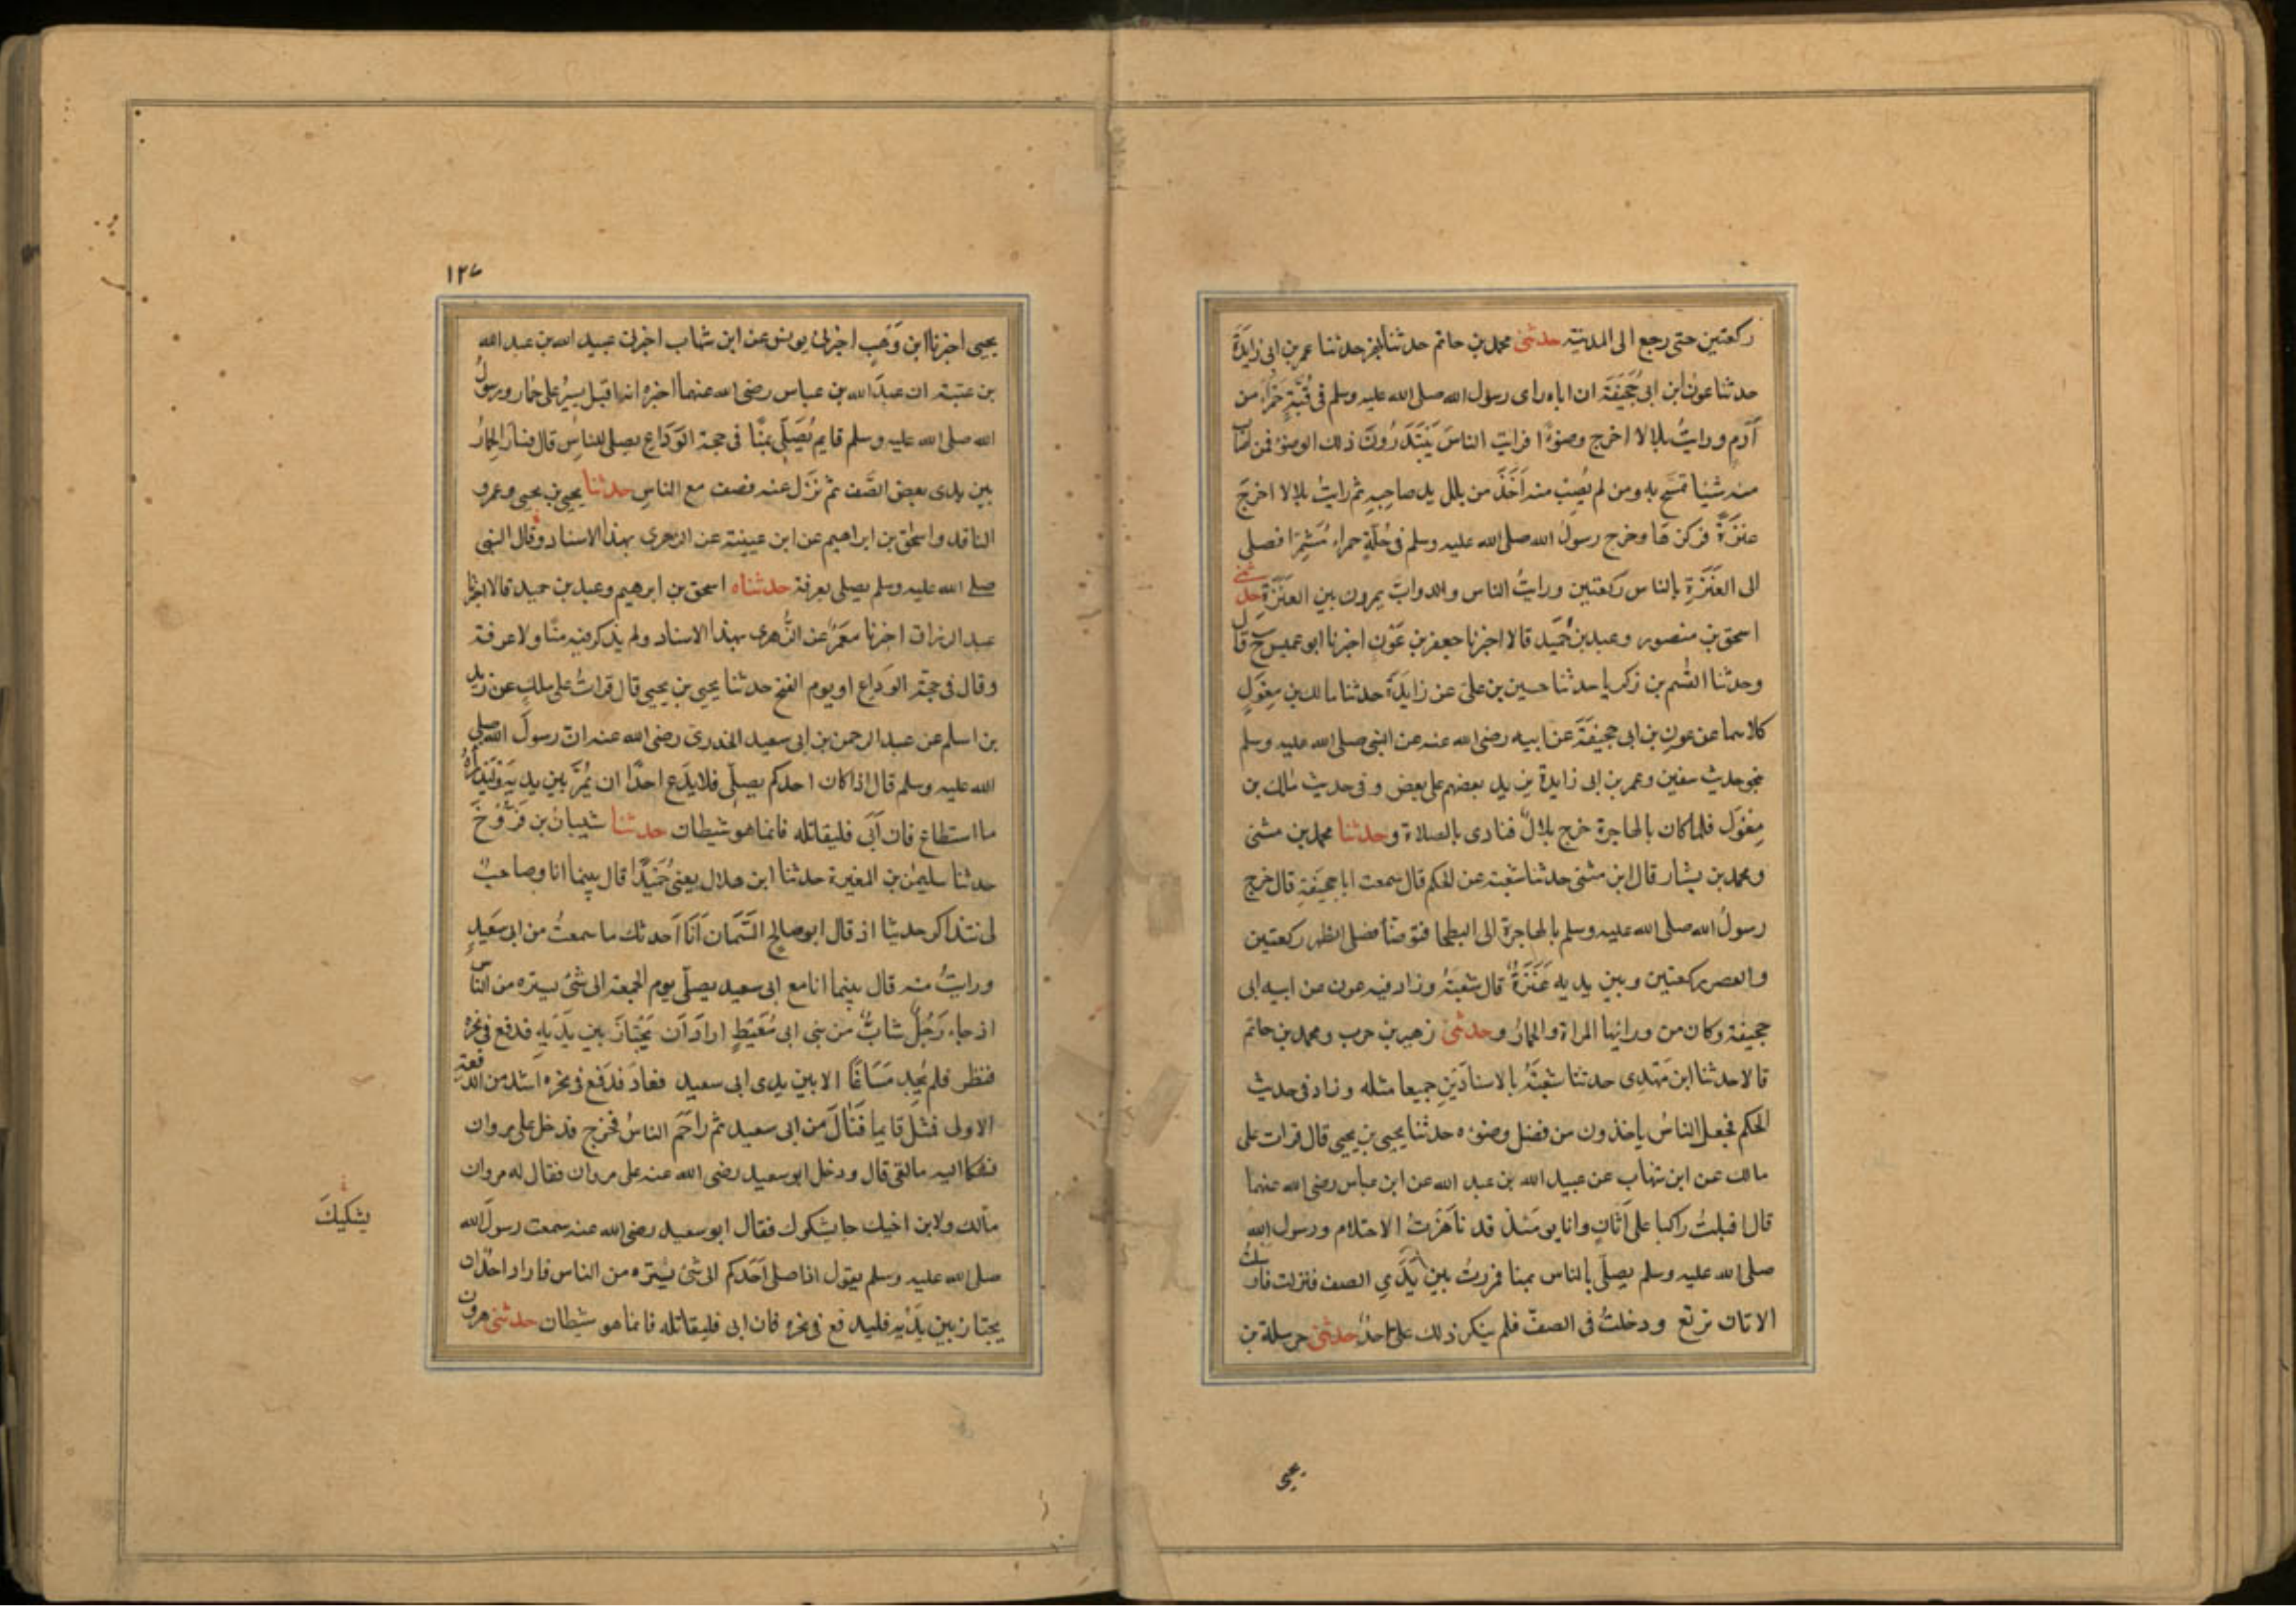 ركعتين حتى رجع الى المدينة حدثنى محمد بن حاتم حدثنا بهز حدثنا عمر بن ابى زايدة
حدثنا عون ابن ابى جُحَيفَة ان اباه راى رسول الله صلى الله عليه وسلم فى قُبَّةٍ حَمْرَاءَ من
آدَمٍ ورايتُ بلالا اخرج وضوءًا فرايت الناسَ يَبْتَدِرُونَ ذلك الوضوء فمن اصاب
منه شيئا تمسَّح به ومن لم يُصِبْ منه اَخَذَ من بلل يد صاحِبِهِ ثم رايتُ بلالا اخرجَ
عنزَةً فركزها وخرج رسولُ الله صلى الله عليه وسلم فى حُلَّةٍ حمراءَ مُشَمِّرًا فصلى
الى العَنَزَةِ بالناس ركعتين ورايتُ الناس والدوابَّ يمرون بين العَنَزَةِ حدثنى
اسحق بن منصور وعبد بن حُمَيد قالا اخبرنا جعفر بن عَوْن اخبرنا ابو عميس ح قال
وحدثنا القسم بن زكريا حدثنا حسين بن على عن زايدَةَ حدثنا مالك بن مِغوَلٍ
كلاهما عن عون بن ابى جحيفَةَ عن ابيه رضى الله عنه عن النبى صلى الله عليه وسلم
بنحو حديث سفين وعمر بن ابى زايدة يزيد بعضهم على بعض وفى حديث مالك بن
مِغوَل فلما كان بالهاجرة خرج بلالٌ فنادى بالصلاة وحدثنا محمد بن مثنى
ومحمد بن بشار قال ابن مثنى حدثنا شعبة عن الحكم قال سمعت ابا جحيفَةَ قال خرج
رسولُ الله صلى الله عليه وسلم بالهاجرة الى البطحا فتوضأ فصلى الظهر ركعتين
والعصر ركعتين وبين يديه عَنَزَةٌ قال شعبَةُ وزاد فيه عون عن ابيه ابى
جحيفة وكان من ورائها المراة والحمارُ وحدثنى زهير بن حرب ومحمد بن حاتم
قالا حدثنا ابن مَهْدِى حدثنا شعبَةُ بالاسنادَيْنِ جميعا مثله وزاد فى حديث
الحكم فجعل الناسُ ياخذون من فضل وضوءه حدثنا يحيى بن يحيى قال قرات على
مالك عن ابن شهاب عن عبيد الله بن عبد الله عن ابن عباس رضى الله عنهما
قال اقبلتُ راكبا على اَتَانٍ وانا يومَئذ قد ناَهَزْتُ الاحتلام ورسول الله
صلى الله عليه وسلم يصلّى بالناس بمنا فمررتُ بين يَدَىِ الصف فنزلت فارسلتُ
الاتان ترتع ودخلتُ فى الصفّ فلم ينكر ذلك علىّ احدٌ حدثنى حرملة بن
يحيى
١٢٧
يحيى اخبرنا ابن وَهبٍ اخبرنى يونس عن ابن شهاب اخبرنى عبيد الله بن عبد الله
بن عتبة ان عبدَ الله بن عباس رضى الله عنهما اخبره انه اقبل يسيرُ على حمار ورسولُ
الله صلى الله عليه وسلم قايم يُصَلِّى بمنًا فى حجة الوَدَاعِ يصلى للناس قال فسار الحمارُ
بين يدى بعض الصَّف ثم نَزَل عنه فصف مع الناسِ حدثنا يحيى بن يحيى وعمرو
الناقد واسحق بن ابراهيم عن ابن عيينة عن الزهرى بهذا الاسناد وقال النبى
صلى الله عليه وسلم يصلى بعرفة حدثناه اسحق بن ابرهيم وعبد بن حميد قالا اخبرنا
عبد الرزاق اخبرنا معمَرٌ عن الزُّهرى بهذا الاسناد ولم يذكر فيه منًا ولا عرفة
وقال فى حجة الوَدَاع او يوم الفتح حدثنا يحيى بن يحيى قال قراتُ على ملك عن زيد
بن اسلم عن عبد الرحمن بن ابى سعيد الخدرى رضى الله عنه ان رسولَ الله صلى
الله عليه وسلم قال اذا كان احدكم يصلّى فلا يَدَع احدًا ان يمُرَّ بين يديه وليدراهُ
ما استطاع فان اَبَى فليقاتله فانما هو شيطان حدثنا شيبانُ بن فَرُّوخَ
حدثنا سليمن بن المغيرة حدثنا ابن هلال يعنى حُمَيدًا قال بينما انا وصاحبٌ
لى نتذاكر حديثا اذ قال ابو صالح السَّمان اَنَا احدثك ما سمعتُ من ابى سَعيدٍ
ورايتُ منه قال بينما انا مع ابى سعيد يصلّى يوم الجمعة الى شئ يستره من الناس
اذ جاءَ رَجُلٌ شابٌّ من بنى ابى مُعَيْطٍ ارادَ ان يَجْتازَ بين يَدَيْهِ فدفع فى نحره
فنظر فلم يَجِد مَسَاغًا الا بين يدى ابى سعيد فعادَ فدفع فى نحره اشد من الدفعة
الاولى فمثل قايما فَنَالَ من ابى سعيد ثم زاحَمَ الناسَ فخرج فدخل على مروان
فشكا اليه ما لقى قال ودخل ابو سعيد رضى الله عنه على مروان فقال له مروان
مالك ولابن اخيك جا يشكوك فقال ابو سعيد رضى الله عنه سمعت رسولَ الله
صلى الله عليه وسلم يقول اذا صلى اَحَدكم الى شئ يستره من الناس فاراد احدٌ ان
يجتاز بين يَدَيْه فليدفع فى نحره فان ابى فليقاتله فانما هو شيطان حدثنى هرون
يشكيكَ